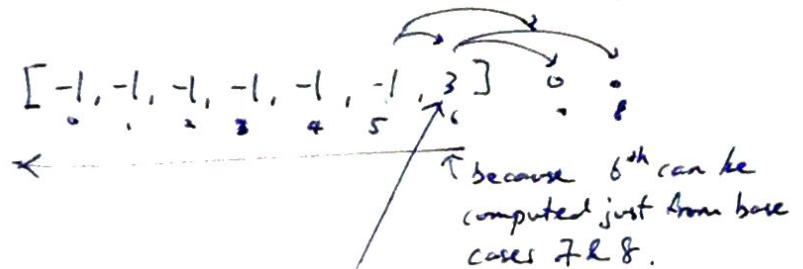 [ -1, -1, -1, -1, -1, -1, 3 ] 0 0
0 1 2 3 4 5 6 8
because 6th can be
computed just from base
cases 7 & 8.